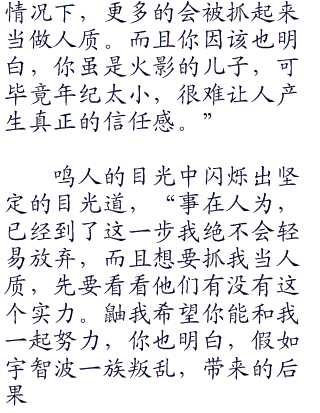 情况下，更多的会被抓起来
当做人质。而且你因该也明
白，你虽是火影的儿子，可
毕竟年纪太小，很难让人产
生真正的信任感。”
鸣人的目光中闪烁出坚
定的目光道，“事在人为，
已经到了这一步我绝不会轻
易放弃，而且想要抓我当人
质，先要看看他们有没有这
个实力。鼬我希望你能和我
一起努力，你也明白，假如
宇智波一族叛乱，带来的后
果